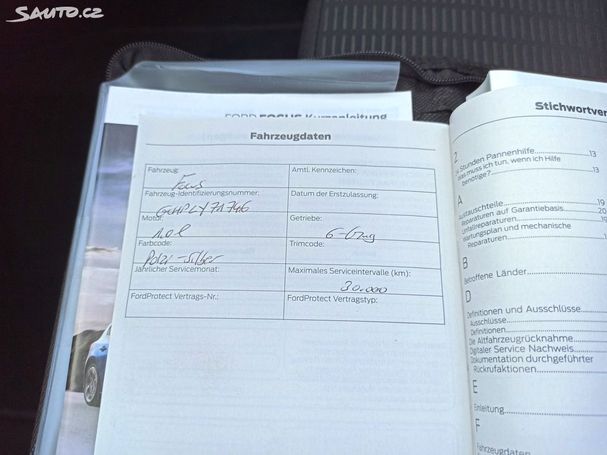 Sauto.cz
FORD FOCUS Kurzanleitung
Fahrzeugdaten
Fahrzeug:
Focus
Amtl. Kennzeichen:
Fahrzeug-Identifizierungsnummer:
Datum der Erstzulassung:
Motor:
1.0 l
Getriebe:
6-Gang
Farbcode:
Polar-Silber
Trimcode:
Jährlicher Servicemonat:
Maximales Serviceintervalle (km):
30.000
FordProtect Vertrags-Nr.:
FordProtect Vertragstyp:
Stichwortver
2
Stunden Pannenhilfe 13
Was muss ich tun, wenn ich Hilfe
benötige? 13
A
Austauschteile 19
Reparaturen auf Garantiebasis 20
Unfallreparaturen
Wartungsplan und mechanische
Reparaturen 1
B
Betroffene Länder
D
Definitionen und Ausschlüsse
Ausschlüsse
Definitionen
Die Altfahrzeugrücknahme
Digitaler Service Nachweis
Dokumentation durchgeführter
Rückrufaktionen
E
Einleitung
F
Fahrzeugdaten